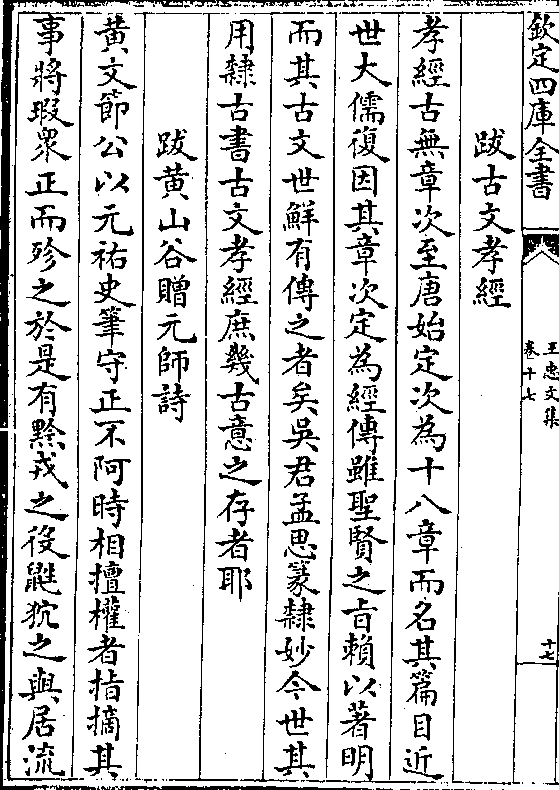 欽定四庫全書
王忠文集
卷十七
十七
跋古文孝經
孝經古無章次至唐始定次為十八章而名其篇目近
世大儒復因其章次定為經傳雖聖賢之旨賴以著明
而其古文世鮮有傳之者矣吳君孟思篆隸妙今世其
用隸古書古文孝經庶幾古意之存者耶
跋黄山谷贈元師詩
黄文節公以元祐史筆守正不阿時相擅權者指摘其
事將瑕衆正而殄之於是有黔戎之役鼪狖之與居流